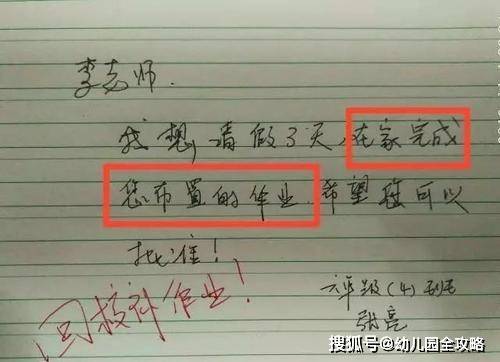 李老师.
我想请假3天,在家完成
您布置的作业,希望您可以
批准!
六年级(4)班
张亮
回校补作业!
搜狐号@幼儿园全攻略